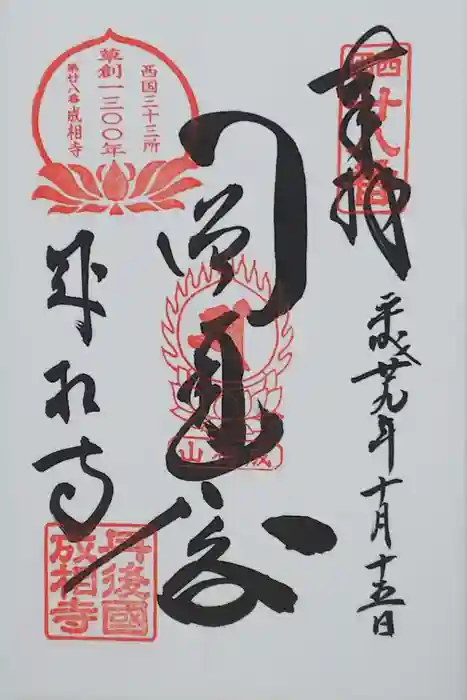 奉拝
西国廿八番
平成廿九年十月十五日
西国三十三所
草創一三〇〇年
第廿八番 成相寺
成相山
成相寺
丹後國
成相寺